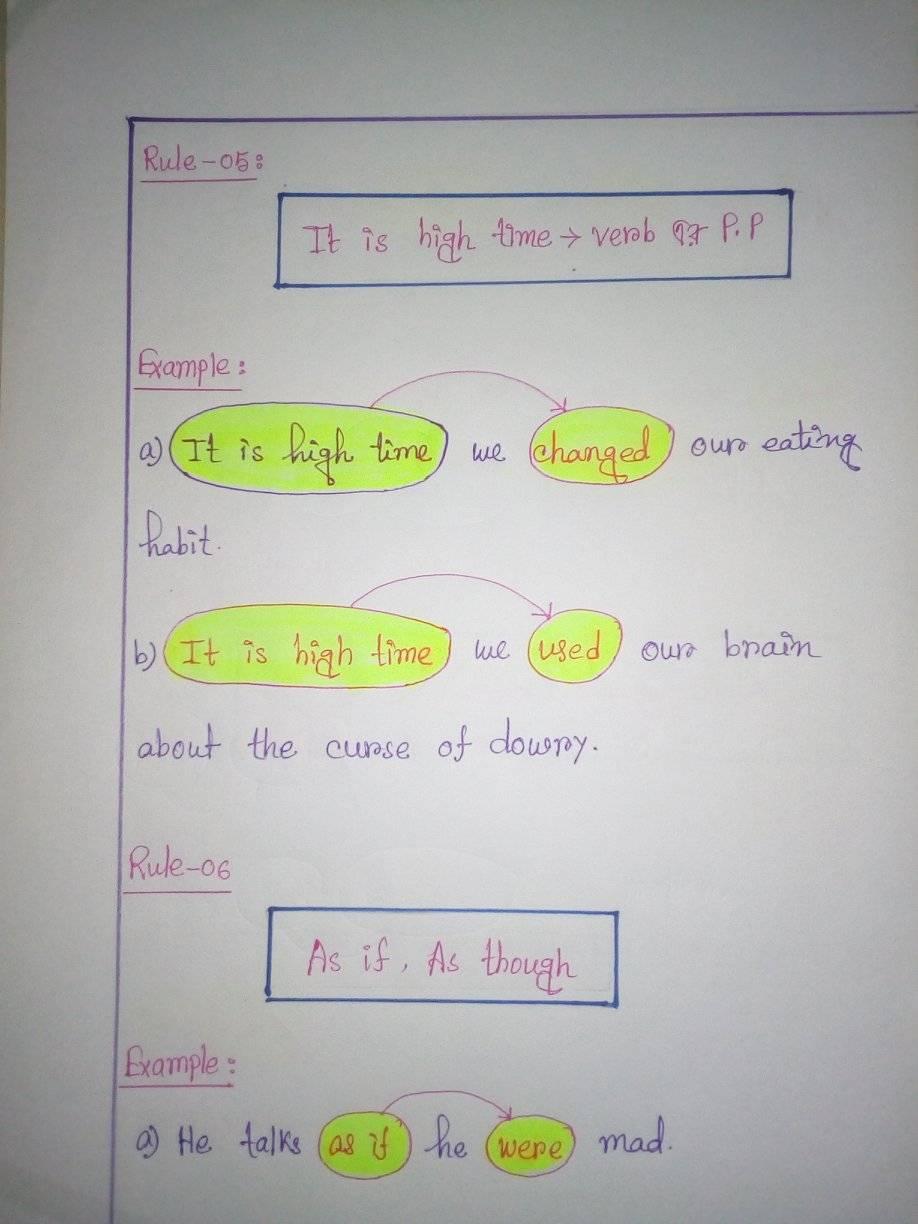 Rule-05:
It is high time → verb এর P.P
Example:
a) It is high time we changed our eating
habit.
b) It is high time we used our brain
about the curse of dowry.
Rule-06
As if, As though
Example:
a) He talks as if he were mad.